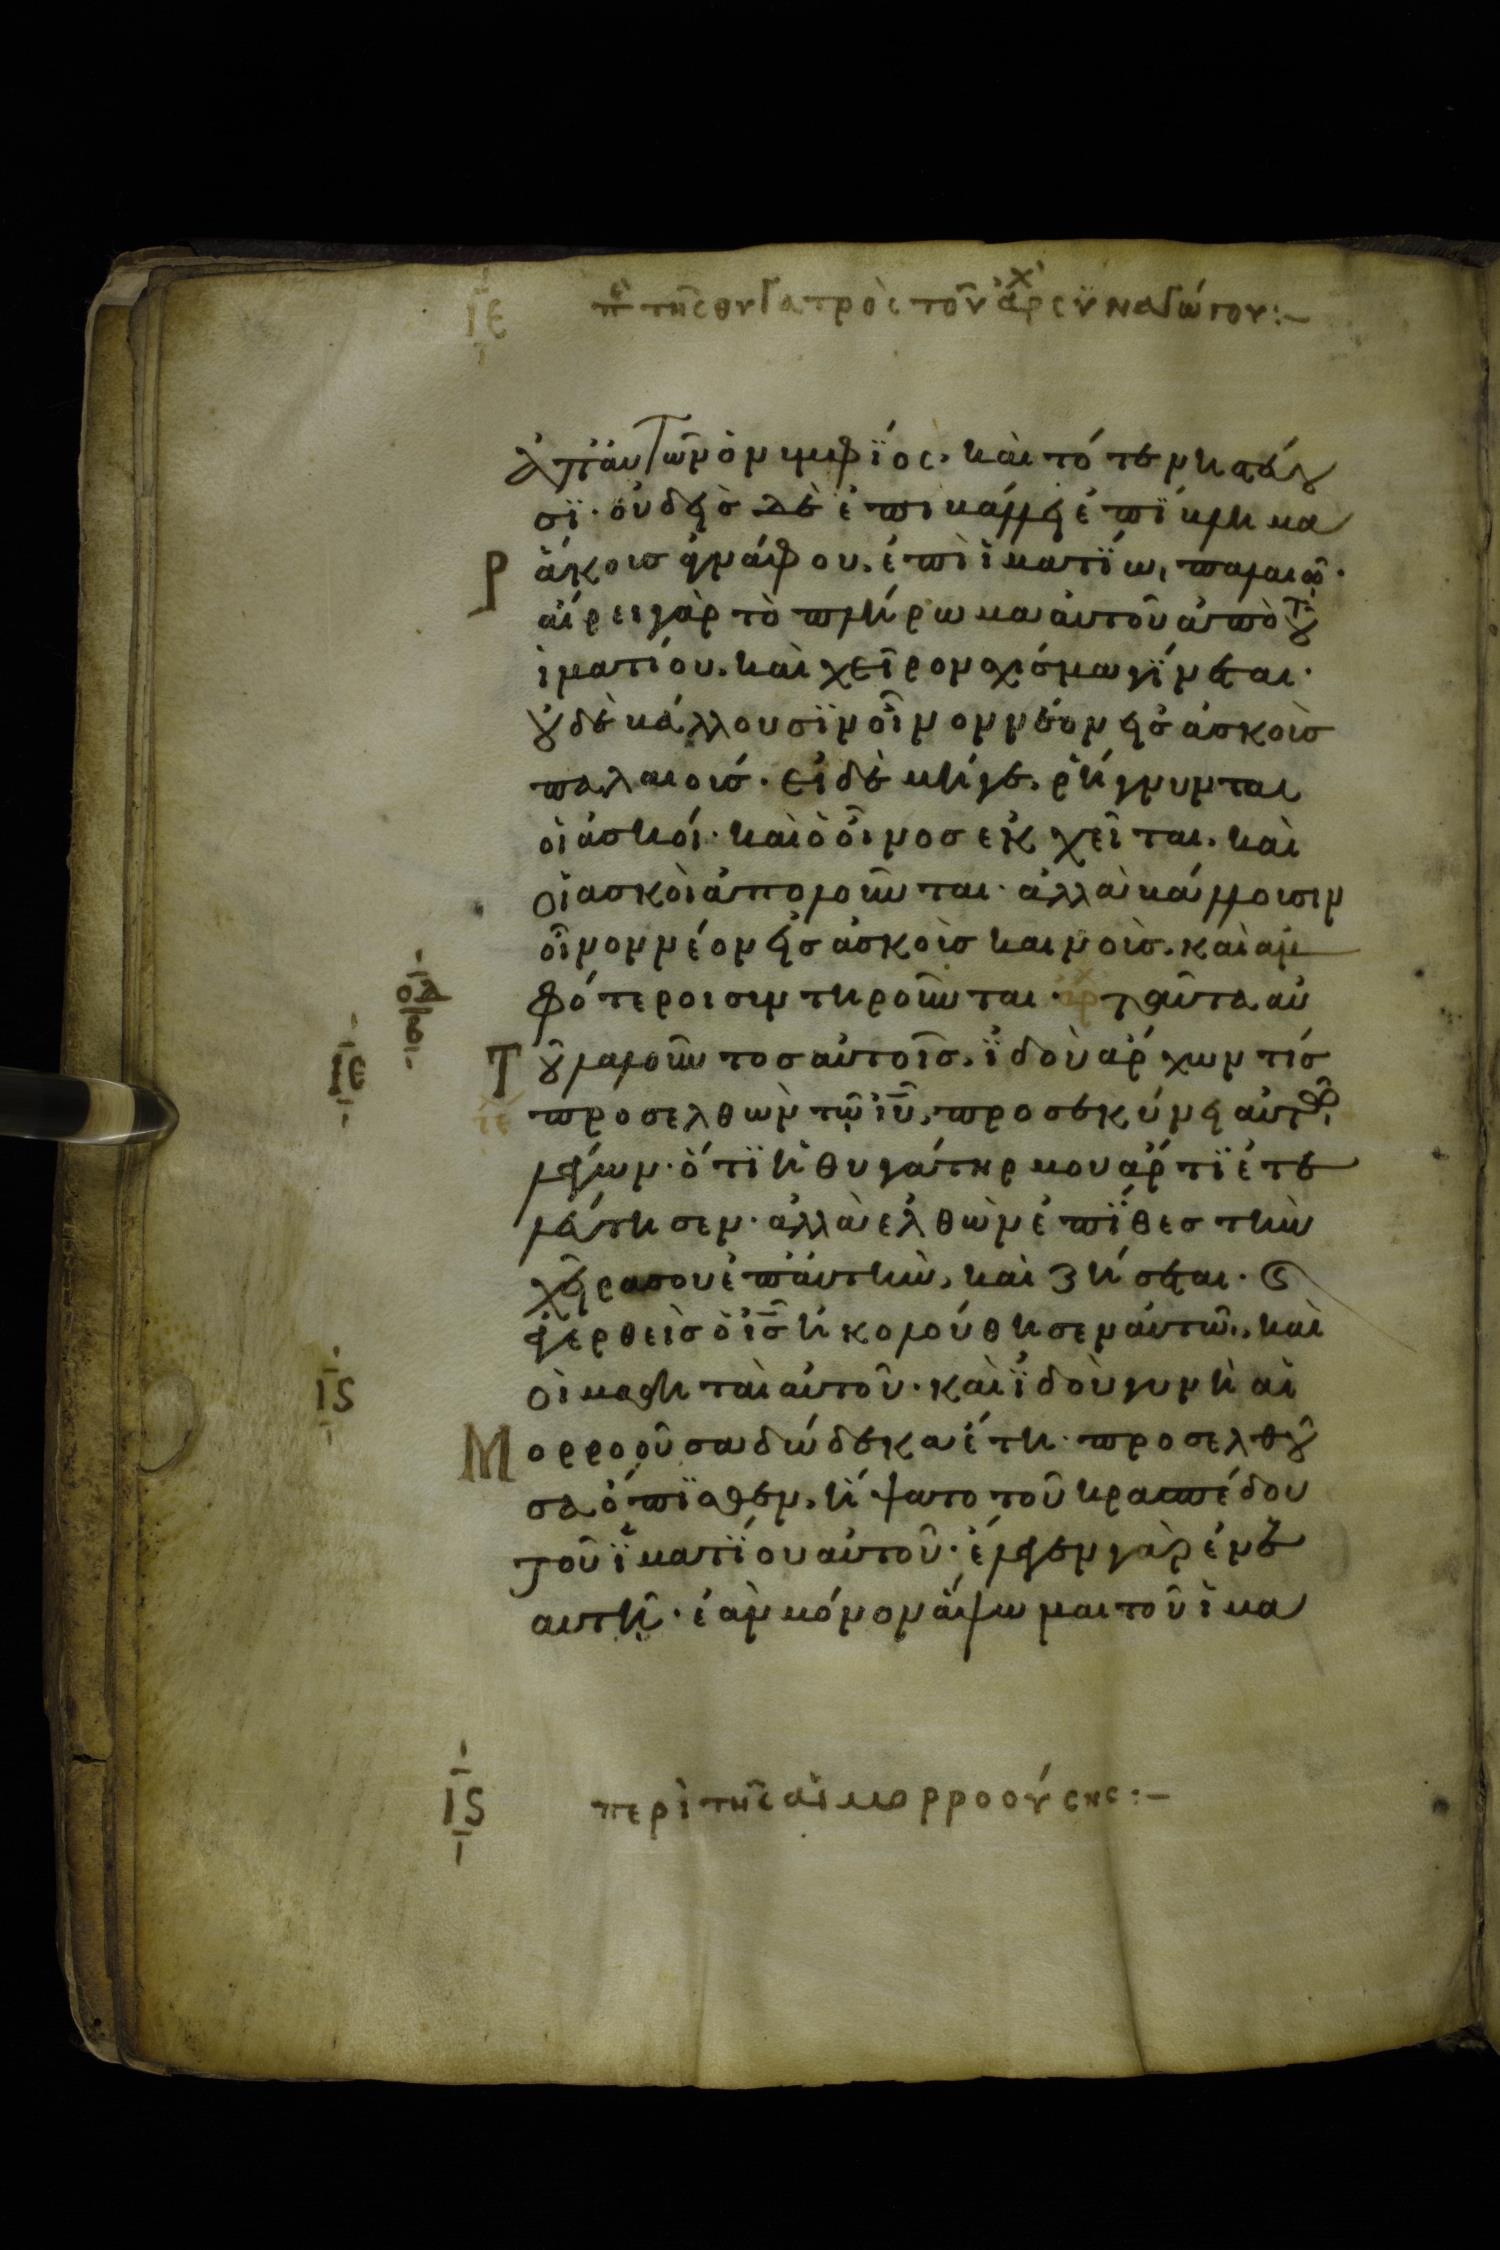 ΙΕ πε τῆς θυγατρὸς τοῦ ἀρχ συναγώγου:–
ἀπ αὐτῶν ὁ νυμφίος· καὶ τότε νηστεύ
σϊ· οὐδεὶσ δὲ ἐπικάλλει ἐπΐκλημα
ῥάκοισ ἀγνάφου, ἐπὶ ἱματΐω παλαιῶ·
αἴρει γὰρ τὸ πλήρωμα αὐτοῦ ἀπὸ τοῦ
ἱματίου, καὶ χεῖρον σχίσμα γΐνεται·
οὐδὲ κάλλουσϊν οἶνον νέον εἰσ ἀσκοὺσ
παλαιούσ· εἰ δὲ μήγε, ῥήγνυνται
οἱ ἀσκοί· καὶ ὁ οἶνοσ ἐκχεῖται, καὶ
οἱ ἀσκοὶ ἀπολοῦνται· ἀλλὰ κάλλουσιν
οἶνον νέον εἰσ ἀσκοὺσ καινοὺσ, καὶ ἀμ
φότεροι συντηροῦνται· ἀρχ ταῦτα αὐ
ΟΔ
Β
ΙΕ
Τοῦ λαλοῦντοσ αὐτοῖσ, ἰδοὺ ἄρχων τίσ
προσελθὼν τῷ ἰῦ, προσεκύνει αὐτῷ
λέγων· ὅτϊ ἡ θυγάτηρ μου ἄρτϊ ἐτε
λεύτησεν· ἀλλὰ ἐλθὼν ἐπΐθεσ τὴν
χεῖρα σου ἐπ αὐτὴν, καὶ ζήσεται· καὶ
ἐγερθεὶσ ὁ ἰσ ἠκολούθησεν αὐτῶ, καὶ
ΙϚ
οἱ μαθηταὶ αὐτοῦ· καὶ ἰδοὺ γυνὴ αἱ
Μορροοῦσα δώδεκα ἔτη· προσελθοῦ
σα ὄπϊσθεν, ἥψατο τοῦ κρασπέδου
τοῦ ἱματΐου αὐτοῦ· ἔλεγεν γὰρ ἐν ἑ
αυτῇ· ἐὰν μόνον ἅψωμαι τοῦ ἱμα
ΙϚ περὶ τῆς αἱμορροούσης:–